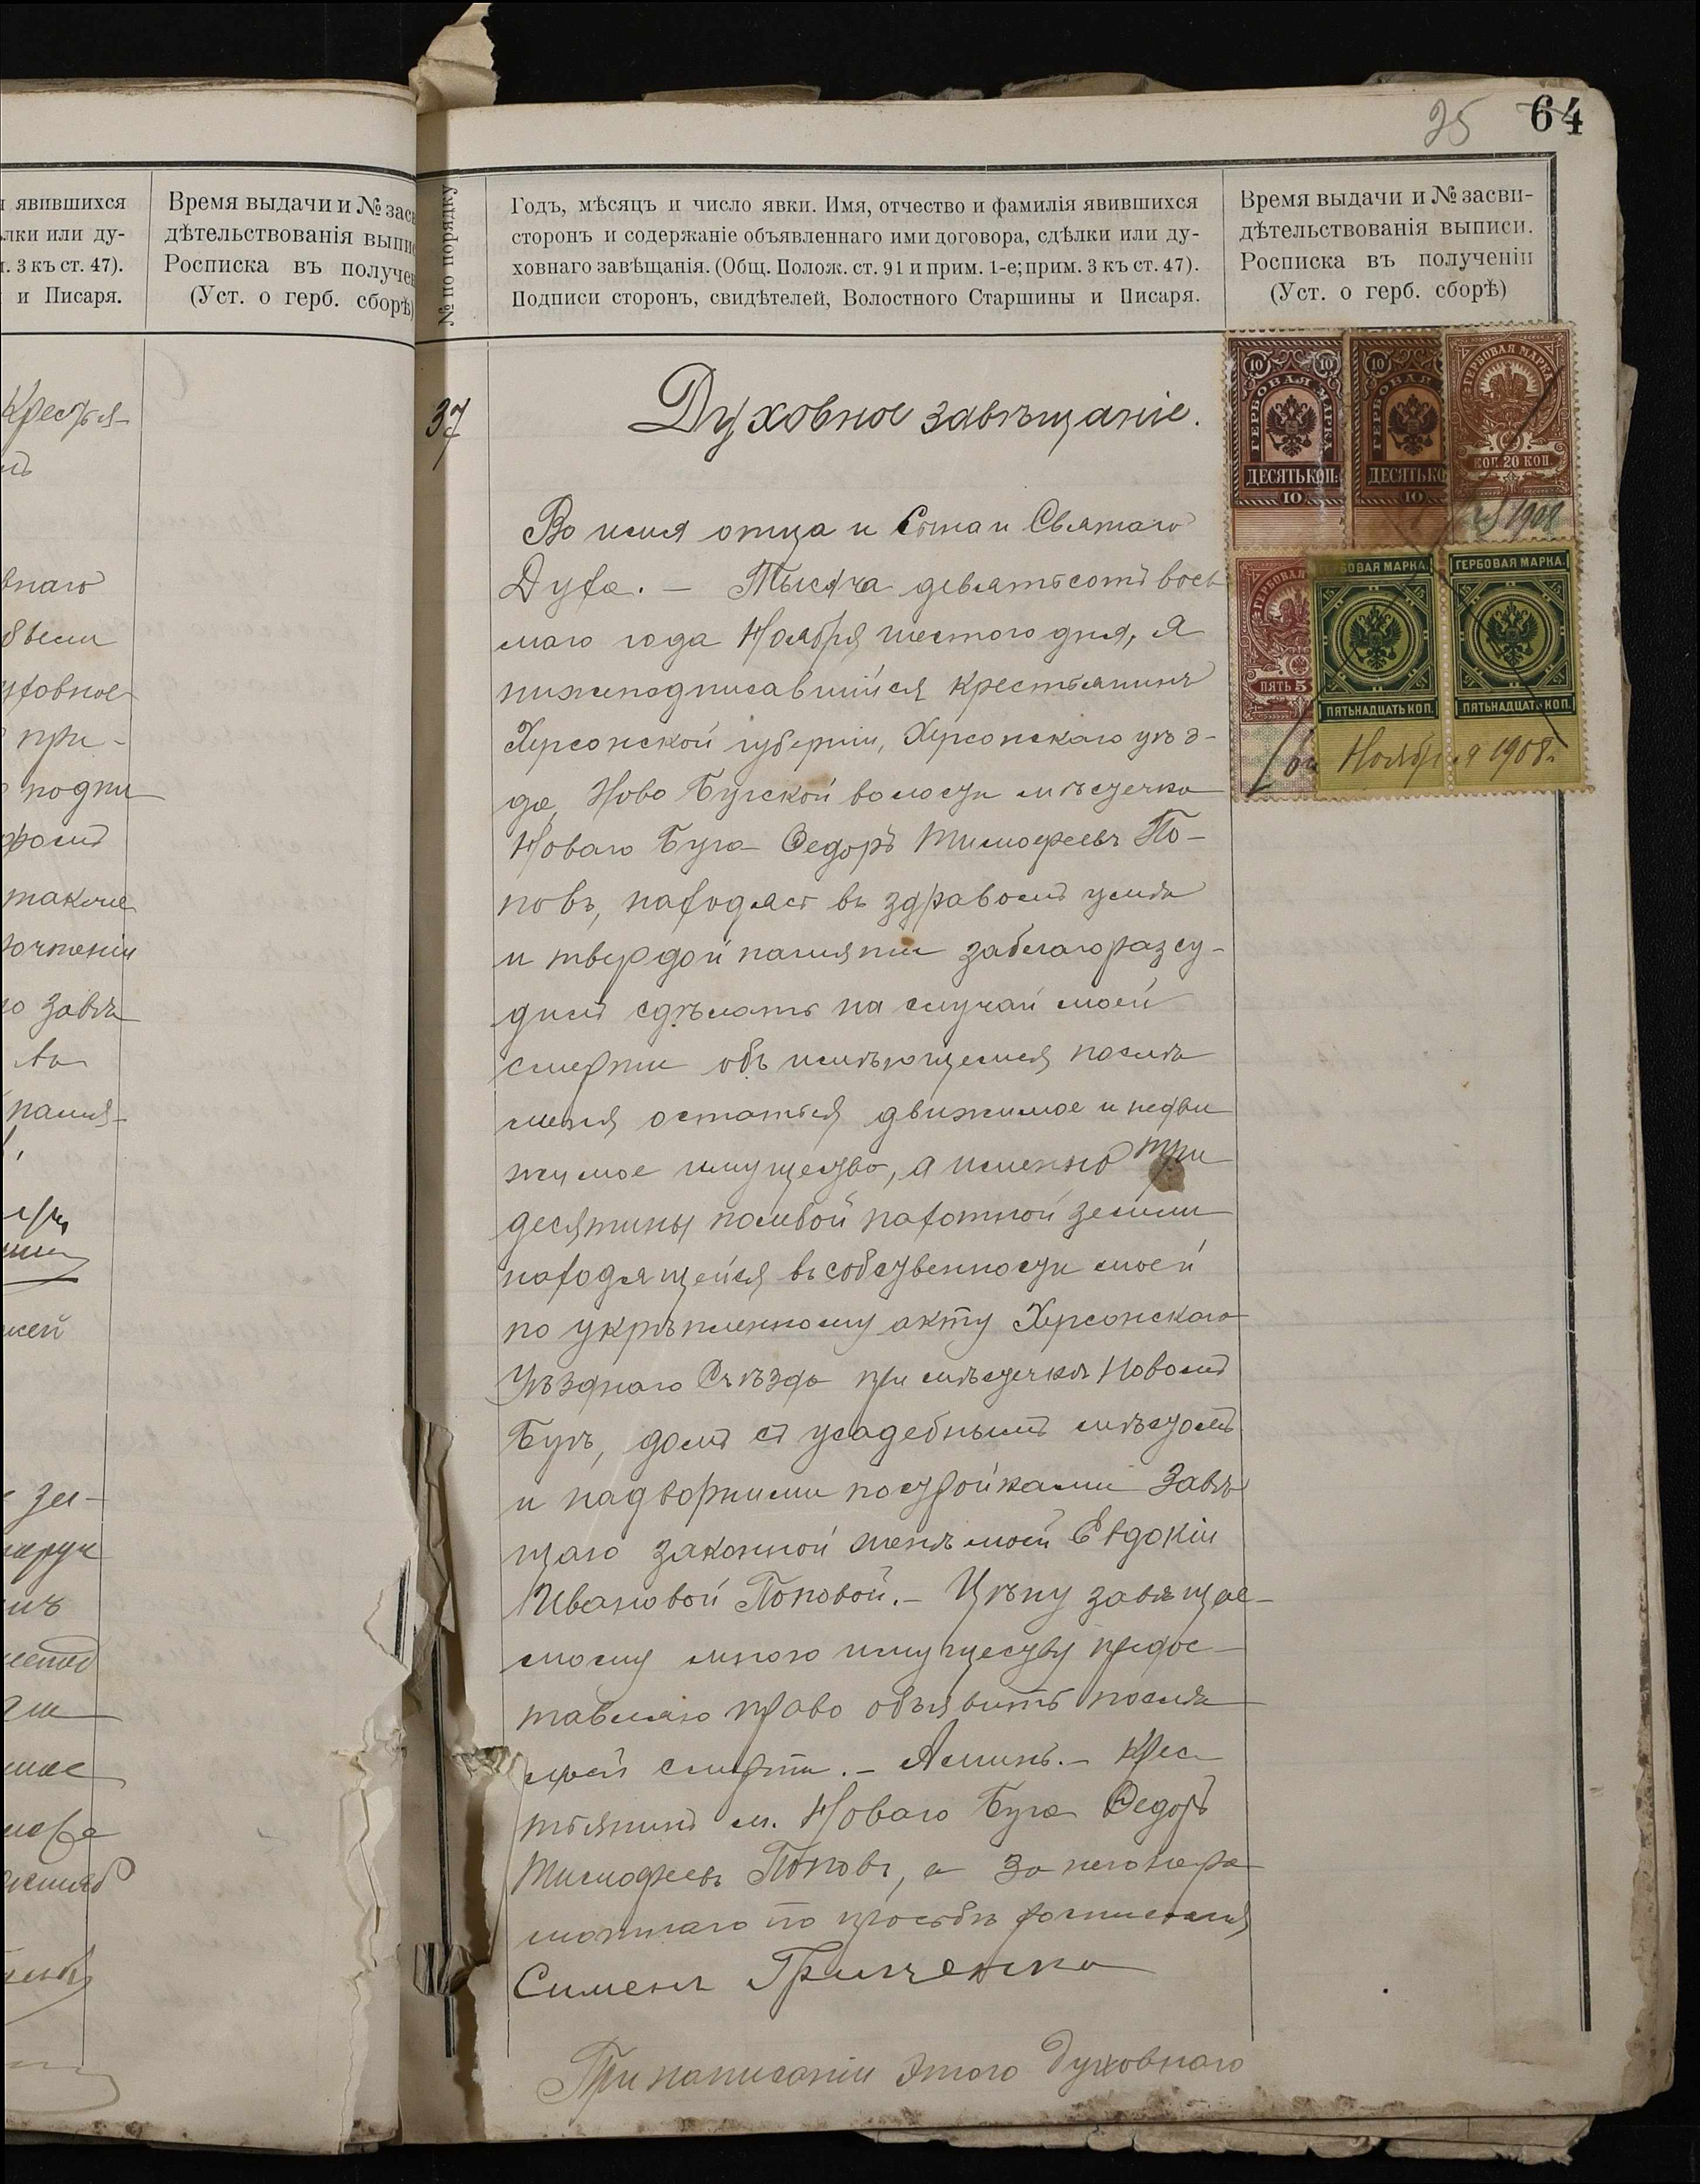 25 64
явившихся
лки или ду-
. 3 къ ст. 47).
и Писаря.
Время выдачи и № зас
дѣтельствованія выпи
Росписка въ получе
(Уст. о герб. сборѣ)
№ по порядку
Годъ, мѣсяцъ и число явки. Имя, отчество и фамилія явившихся
сторонъ и содержаніе объявленнаго ими договора, сдѣлки или ду-
ховнаго завѣщанія. (Общ. Полож. ст. 91 и прим. 1-е; прим. 3 къ ст. 47).
Подписи сторонъ, свидѣтелей, Волостного Старшины и Писаря.
Время выдачи и № засви-
дѣтельствованія выписи.
Росписка въ полученіи
(Уст. о герб. сборѣ)
Крестья-
внаго
уховное
при-
подпи
также
прочтеніи
го завѣ
памя-
37
Духовное завѣщаніе.
Во имя отца и Сына и Святаго
Духа. — Тысяча девятьсотъ вось
маго года Ноября шестого дня, Я
нижеподписавшійся крестьянинъ
Херсонской губерніи, Херсонскаго уѣз-
да, Ново Бугской волости мѣстечка
Новаго Буга Ѳедоръ Тимофеевъ По-
повъ, находясь въ здравомъ умѣ
и твердой памяти заблагоразсу-
дилъ сдѣлать на случай моей
смерти объ имѣющемся послѣ
меня остаться движимое и недви
жимое имущество, а именно три
десятины полевой пахотной земли
находящейся въ собственности моей
по укрѣпленному акту Херсонскаго
Уѣзднаго Съѣзда при мѣстечкѣ Новомъ
Бугѣ, домъ съ усадебнымъ мѣстомъ
и надворними постройками Завѣ
щаю законной женѣ моей Евдокіи
Ивановой Поповой. — Цѣну завѣщае-
мому мною имуществу предос-
тавляю право объявить послѣ
моей смерти. — Аминь. — Крес
тьянинъ м. Новаго Буга Ѳедоръ
Тимофеевъ Поповъ, а за него негра
мотнаго по просьбѣ росписался
Сименъ Гриценко
При написаніи этого духовнаго
ГЕРБОВАЯ МАРКА
ДЕСЯТЬ КОП.
10
ГЕРБОВАЯ
ДЕСЯТЬ КО
10
ГЕРБОВАЯ МАРКА
КОП. 20 КОП.
1908
ГЕРБОВАЯ
ПЯТЬ 5
ГЕРБОВАЯ МАРКА.
ПЯТЬНАДЦАТЬ КОП.
ГЕРБОВАЯ МАРКА.
ПЯТЬНАДЦАТЬ КОП.
6го Ноября 1908г.